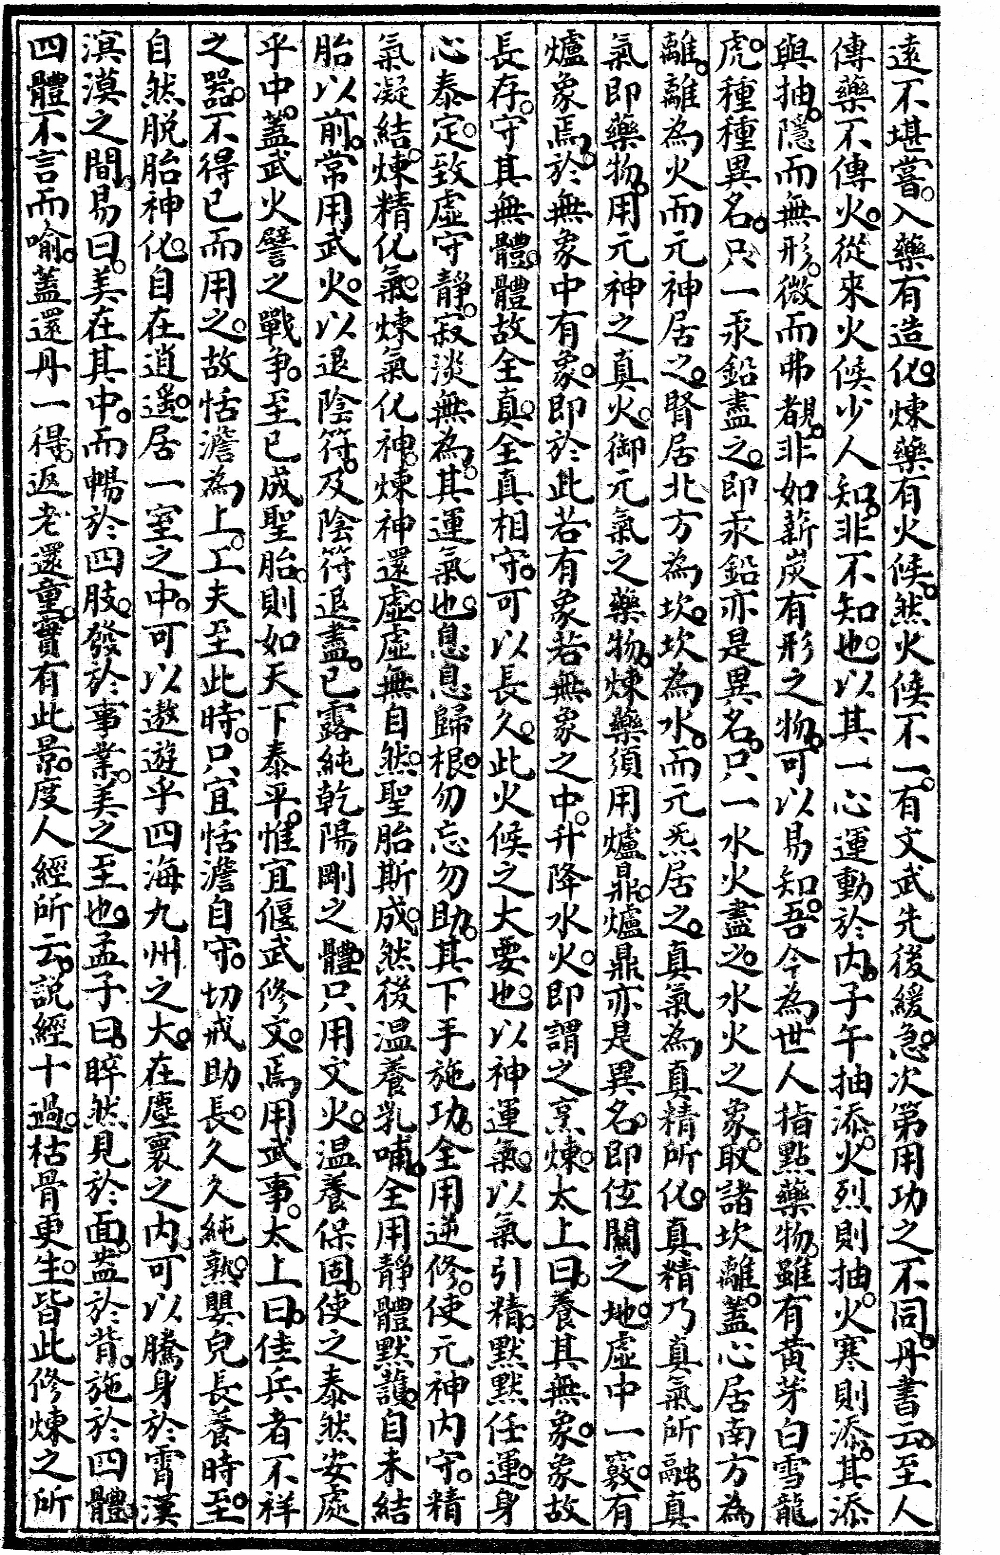 遠不堪嘗。入藥有造化。煉藥有火候。然火候不一。有文武先後緩急。次第用功之不同。丹書云。至人
傳藥不傳火。從來火候少人知。非不知也。以其一心運動於内。子午抽添。火烈則抽。火寒則添。其添
與抽。隱而無形。微而弗覩。非如薪炭有形之物。可以易知。吾今為世人指點藥物。雖有黄芽白雪龍
虎。種種異名。只一汞鉛盡之。即汞鉛亦是異名。只一水火盡之。水火之象。取諸坎離。蓋心居南方為
離。離為火而元神居之。腎居北方為坎。坎為水。而元炁居之。真氣為真精所化。真精乃真氣所融。真
氣即藥物。用元神之真火。御元氣之藥物。煉藥須用爐鼎。爐鼎亦是異名。即位關之地。虛中一竅。有
爐象焉。於無象中有象。即於此若有象若無象之中。升降水火。即謂之烹煉。太上曰。養其無象。象故
長存。守其無體。體故全真。全真相守。可以長久。此火候之大要也。以神運氣。以氣引精。默默任運。身
心泰定。致虛守靜。寂淡無為。其運氣也。息息歸根。勿忘勿助。其下手施功。全用逆修。使元神内守。精
氣凝結。煉精化氣。煉氣化神。煉神還虛。虛無自然。聖胎斯成。然後温養乳哺。全用靜體默護。自未結
胎以前。常用武火。以退陰符。及陰符退盡。已露純乾陽剛之體。只用文火。温養保固。使之泰然安處
乎中。蓋武火譬之戰争。至已成聖胎。則如天下泰平。惟宜偃武修文。焉用武事。太上曰。佳兵者不祥
之器。不得已而用之。故恬澹為上。工夫至此時。只宜恬澹自守。切戒助長。久久純熟。嬰兒長養時至。
自然脱胎神化。自在逍遥。居一室之中。可以遨遊乎四海九州之大。在塵寰之内。可以騰身於霄漢
溟漠之間。易曰。美在其中。而暢於四肢。發於事業。美之至也。孟子曰。睟然見於面。盎於背。施於四體。
四體不言而喻。蓋還丹一得。返老還童。實有此景。度人經所云。說經十過。枯骨更生。皆此修煉之所